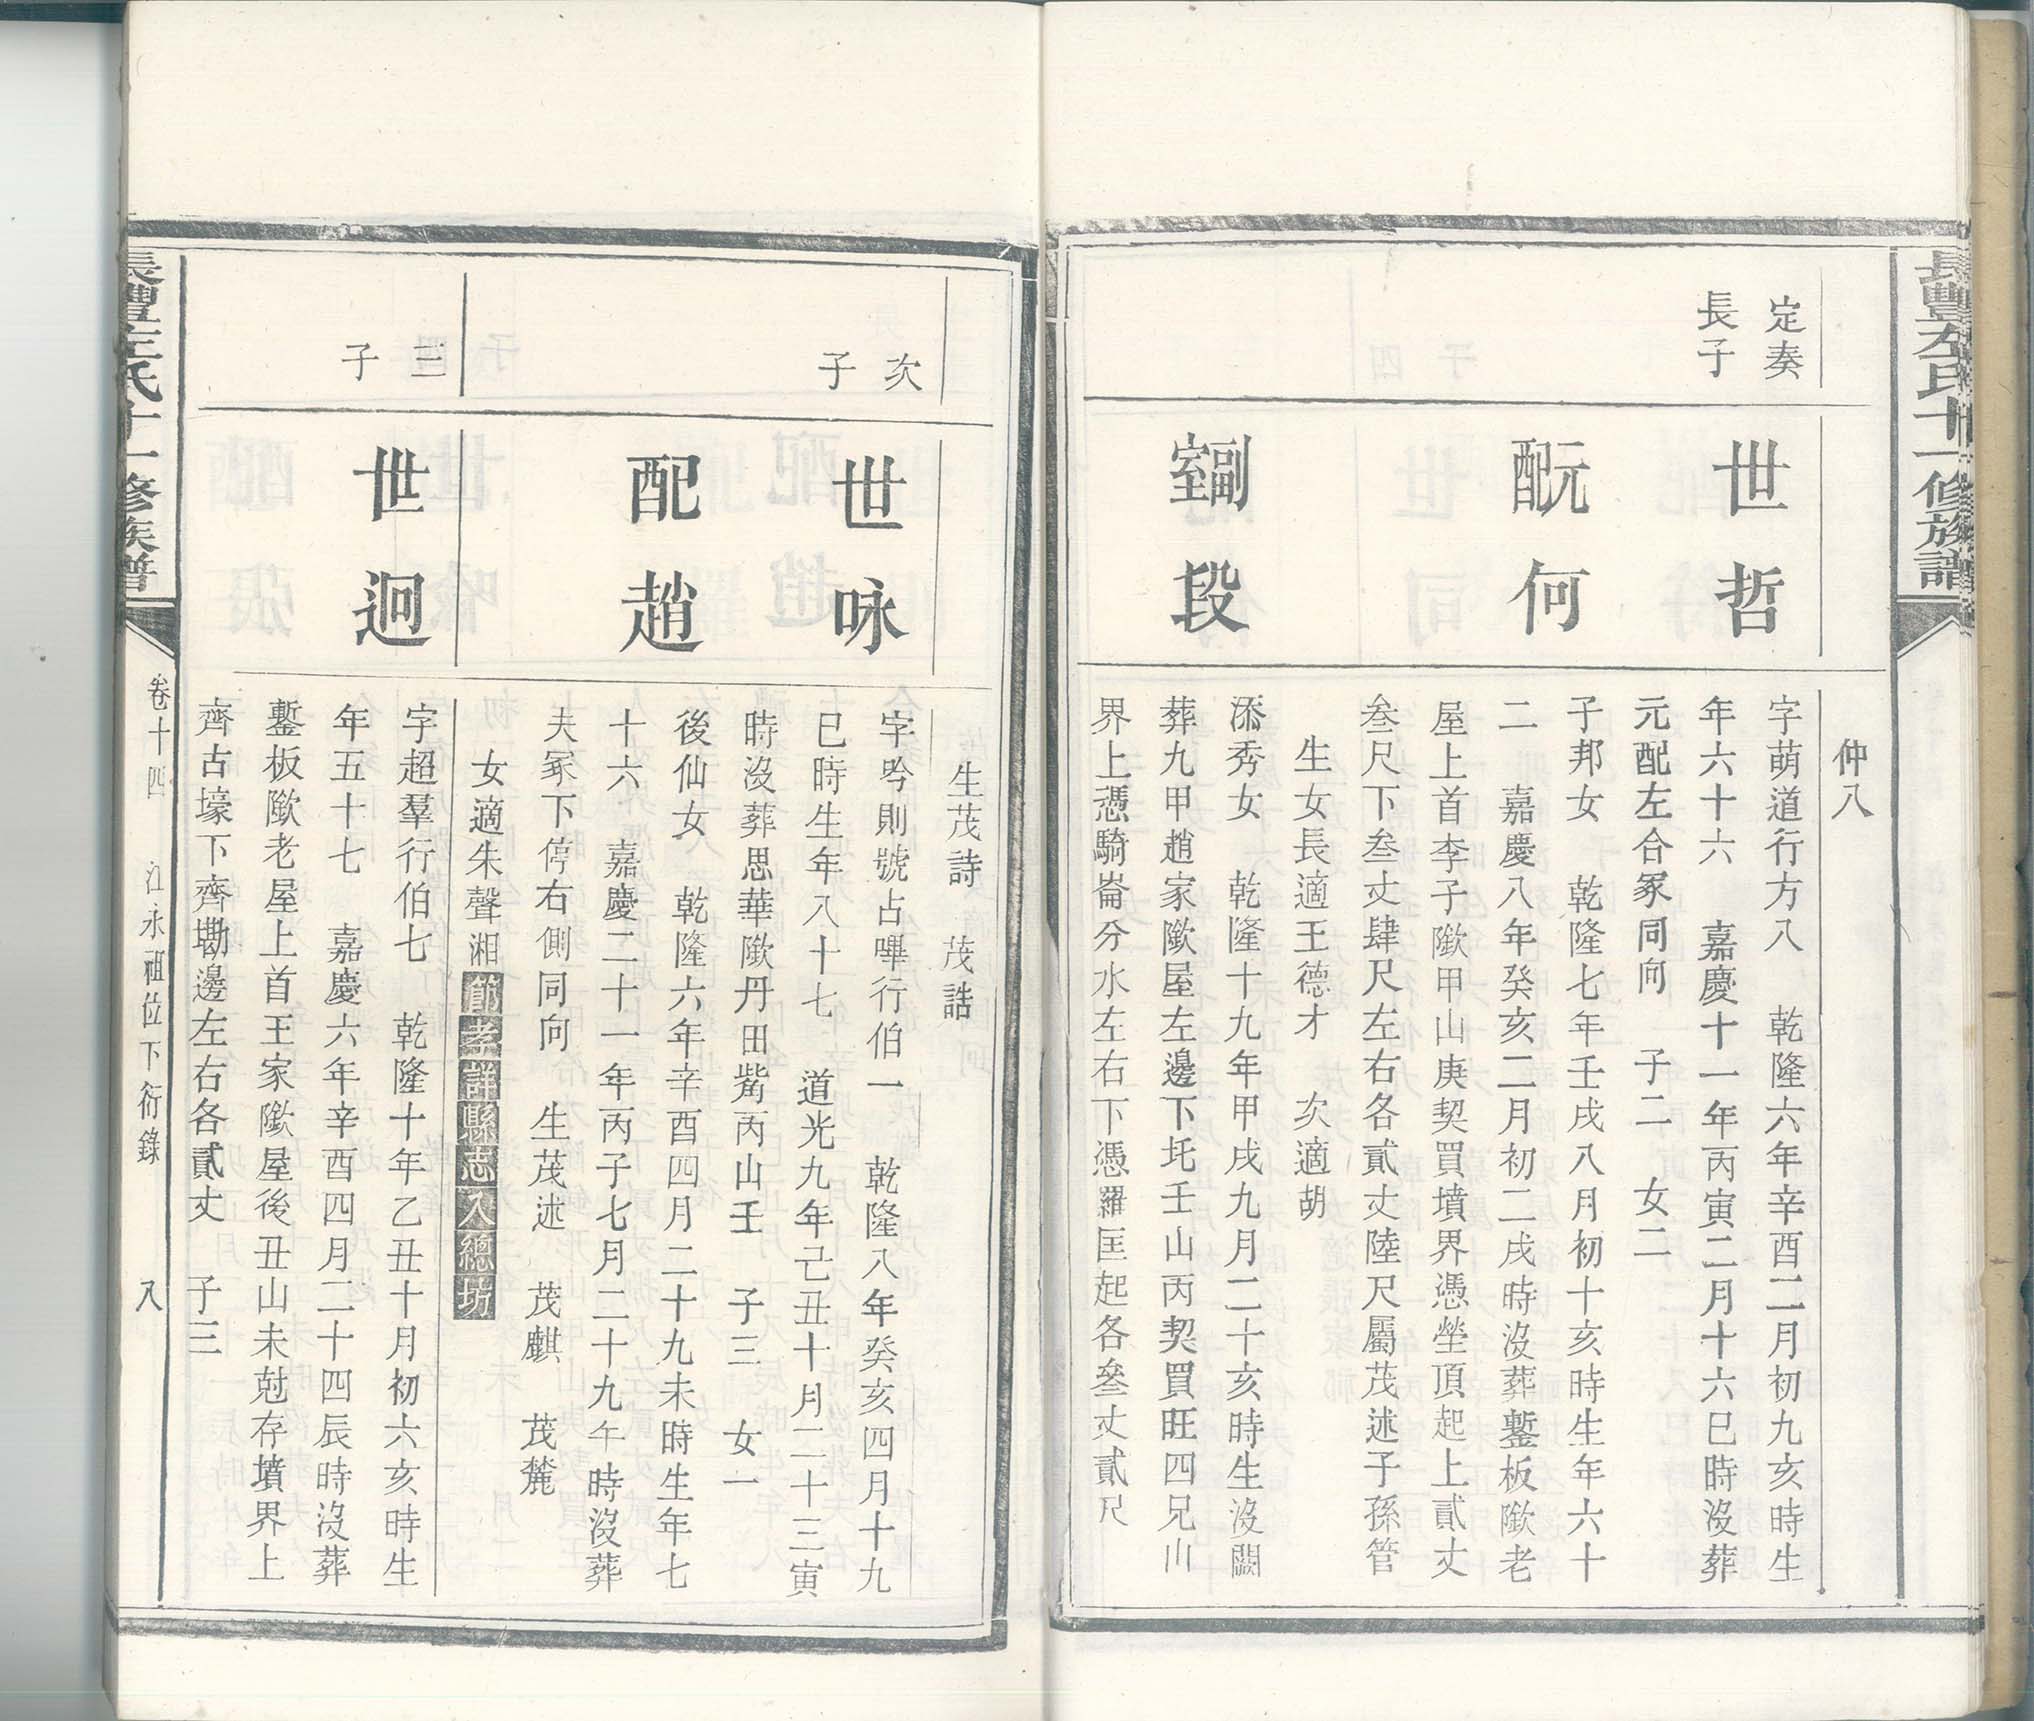 長豐左氏十一修族譜
仲八
定奏
長子
世哲
字萌道行方八　乾隆六年辛酉二月初九亥時生
年六十六　嘉慶十一年丙寅二月十六巳時沒葬
元配左合冢同向　子二　女二
元配何
子邦女　乾隆七年壬戌八月初十亥時生年六十
二　嘉慶八年癸亥二月初二戌時沒葬鏨板墩老
屋上首李子墩甲山庚契買墳界憑塋頂起上貳丈
叁尺下叁丈肆尺左右各貳丈陸尺屬茂述子孫管
生女長適王德才　次適胡
副室段
添秀女　乾隆十九年甲戌九月二十亥時生沒闕
葬九甲趙家墩屋左邊下圫壬山丙契買旺四兄山
界上憑騎崙分水左右下憑羅匡起各叄丈貳尺
生茂詩　茂誥
次
子
世咏
字吟則號占嗶行伯一　乾隆八年癸亥四月十九
巳時生年八十七　道光九年己丑十月二十三寅
時沒葬思華墩丹田觜丙山壬　子三　女一
配趙
後仙女　乾隆六年辛酉四月二十九未時生年七
十六　嘉慶二十一年丙子七月二十九午時沒葬
夫冢下停右側同向　生茂述　茂麒　茂麓
女適朱聲湘節孝詳縣志入總坊
三
子
世迥
字超羣行伯七　乾隆十年乙丑十月初六亥時生
年五十七　嘉慶六年辛酉四月二十四辰時沒葬
鏨板墩老屋上首王家墩屋後丑山未尅存墳界上
齊古壕下齊墈邊左右各貳丈　子三
長豐左氏十一修族譜
卷十四　江永祖位下衍錄　八